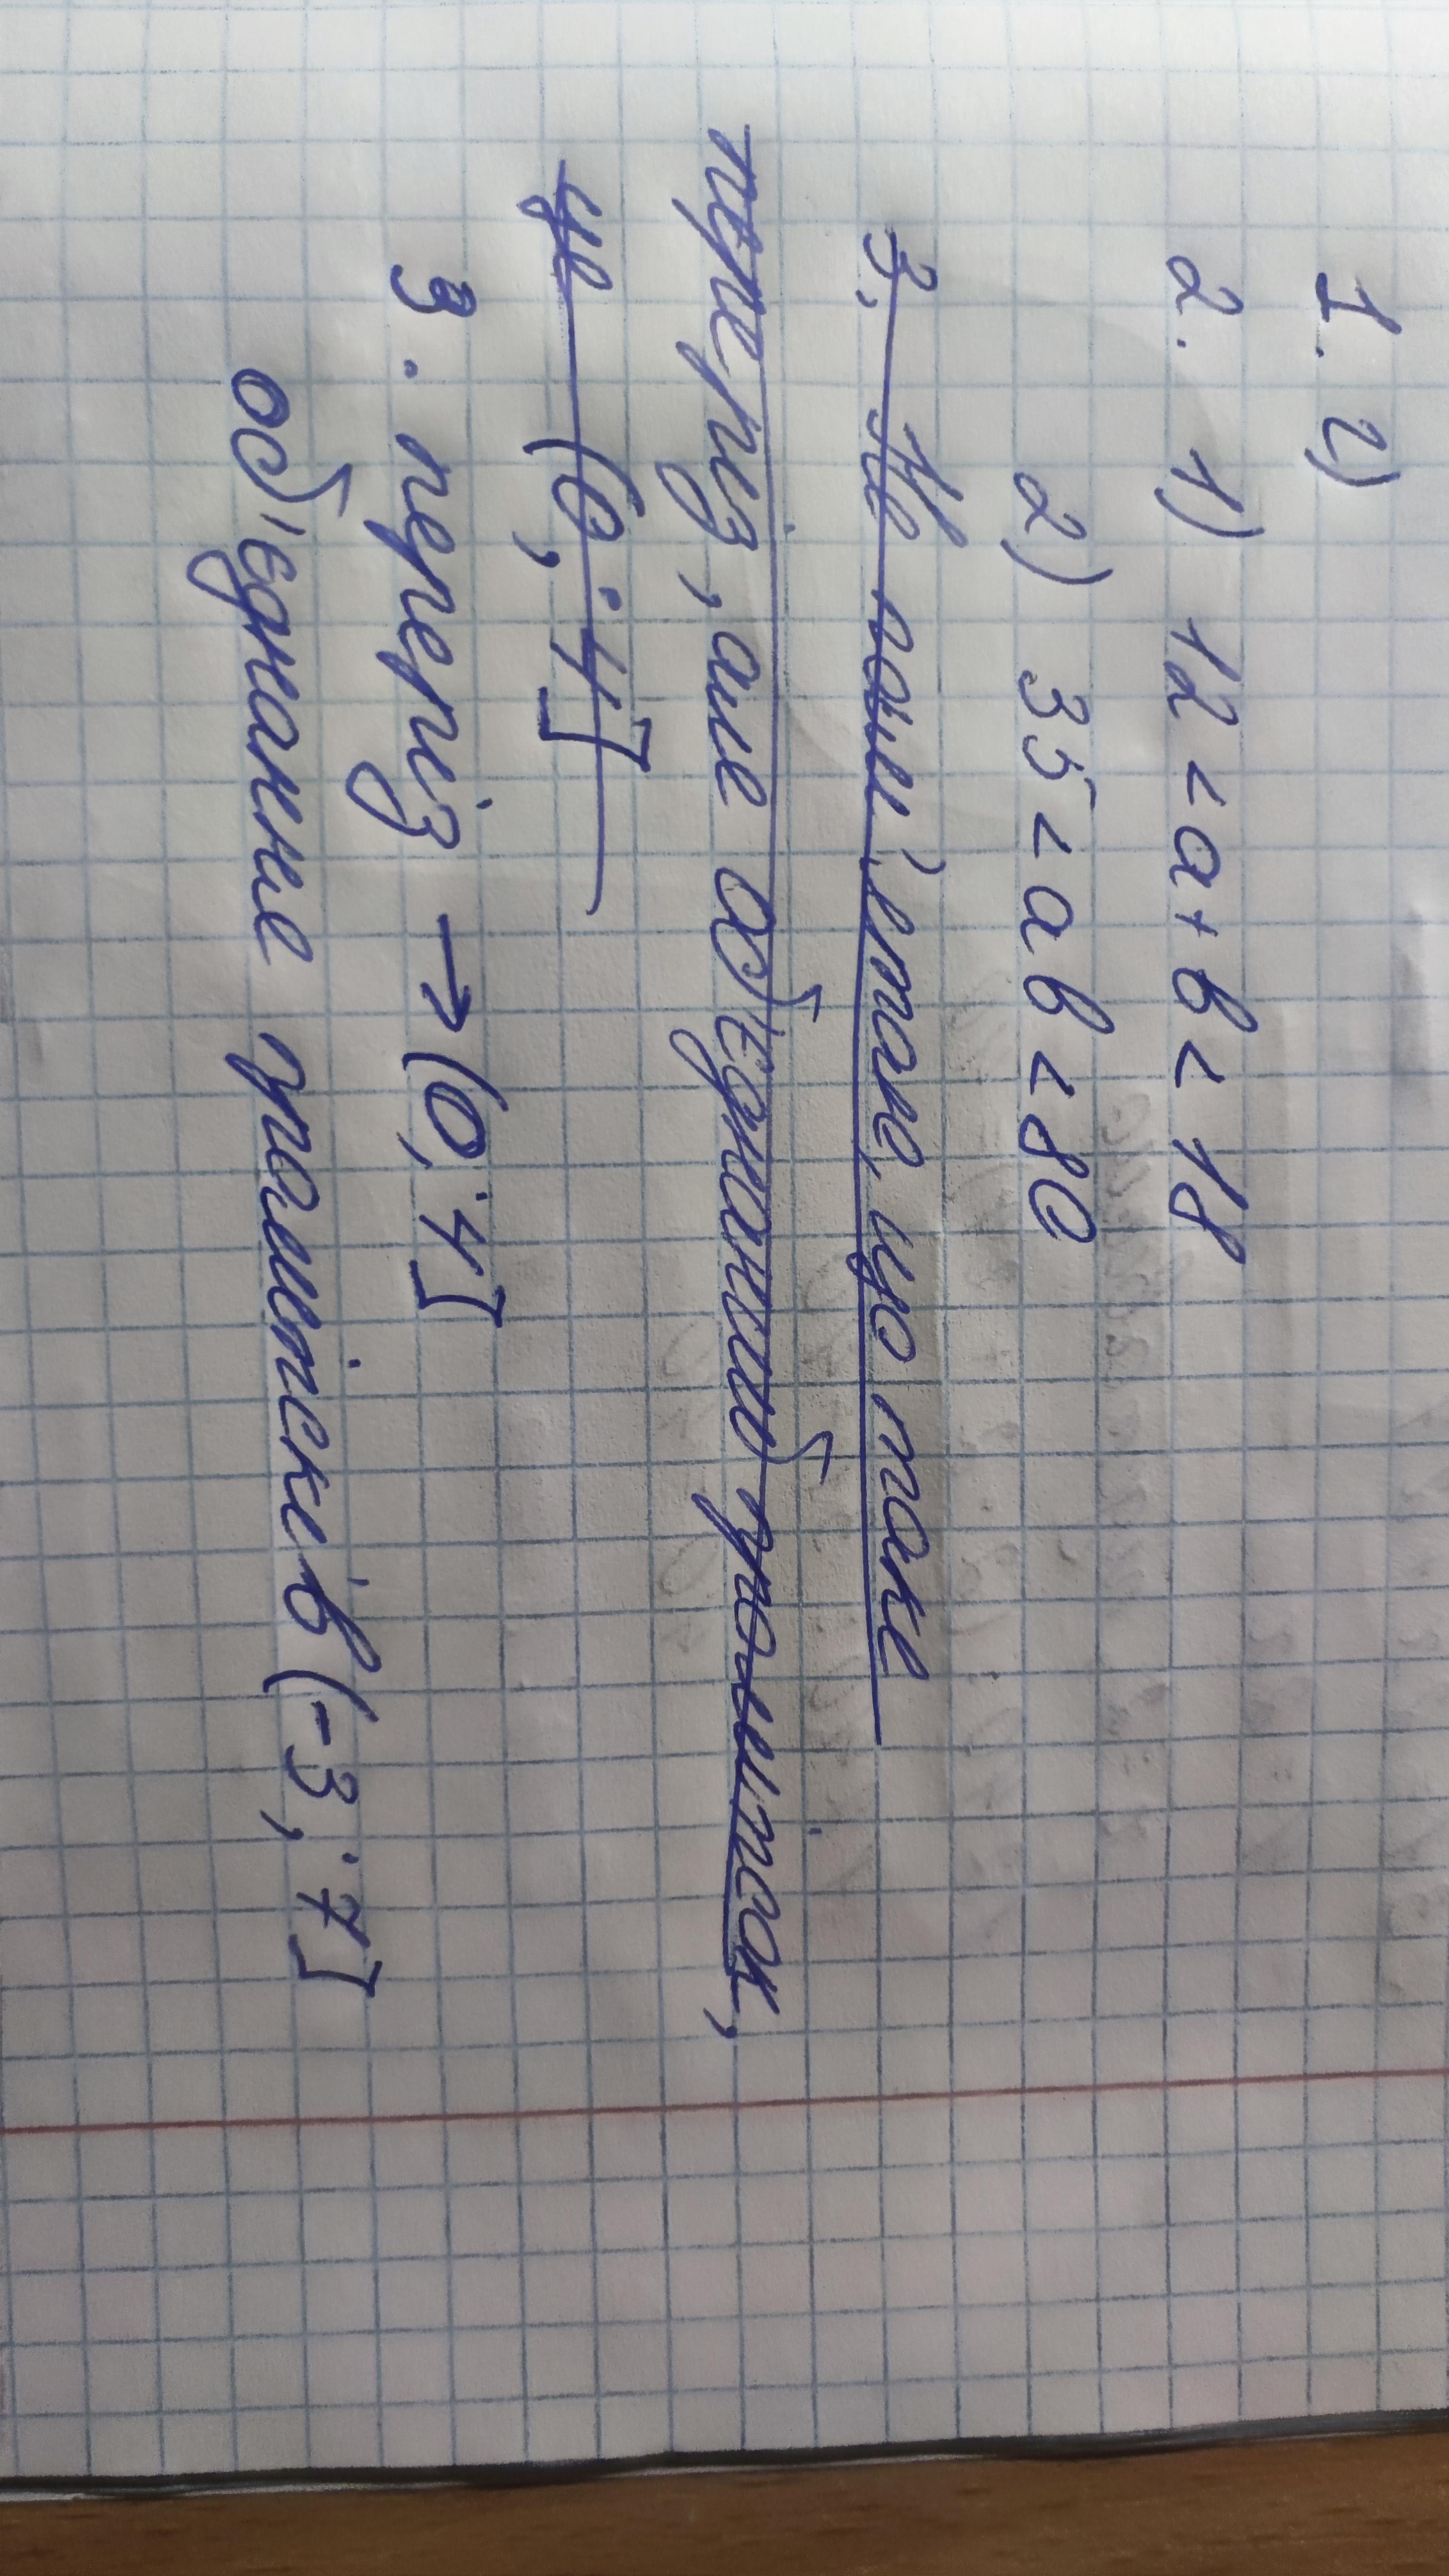 1. 2)
2. 1) 12 < a + b < 18
2) 35 < a b < 80
3. Не пам'ятаю, що таке
переріз, але об'єднаний проміжок,
це (0; 4]
3. переріз → (0; 4]
об'єднання проміжків (-3; 7]